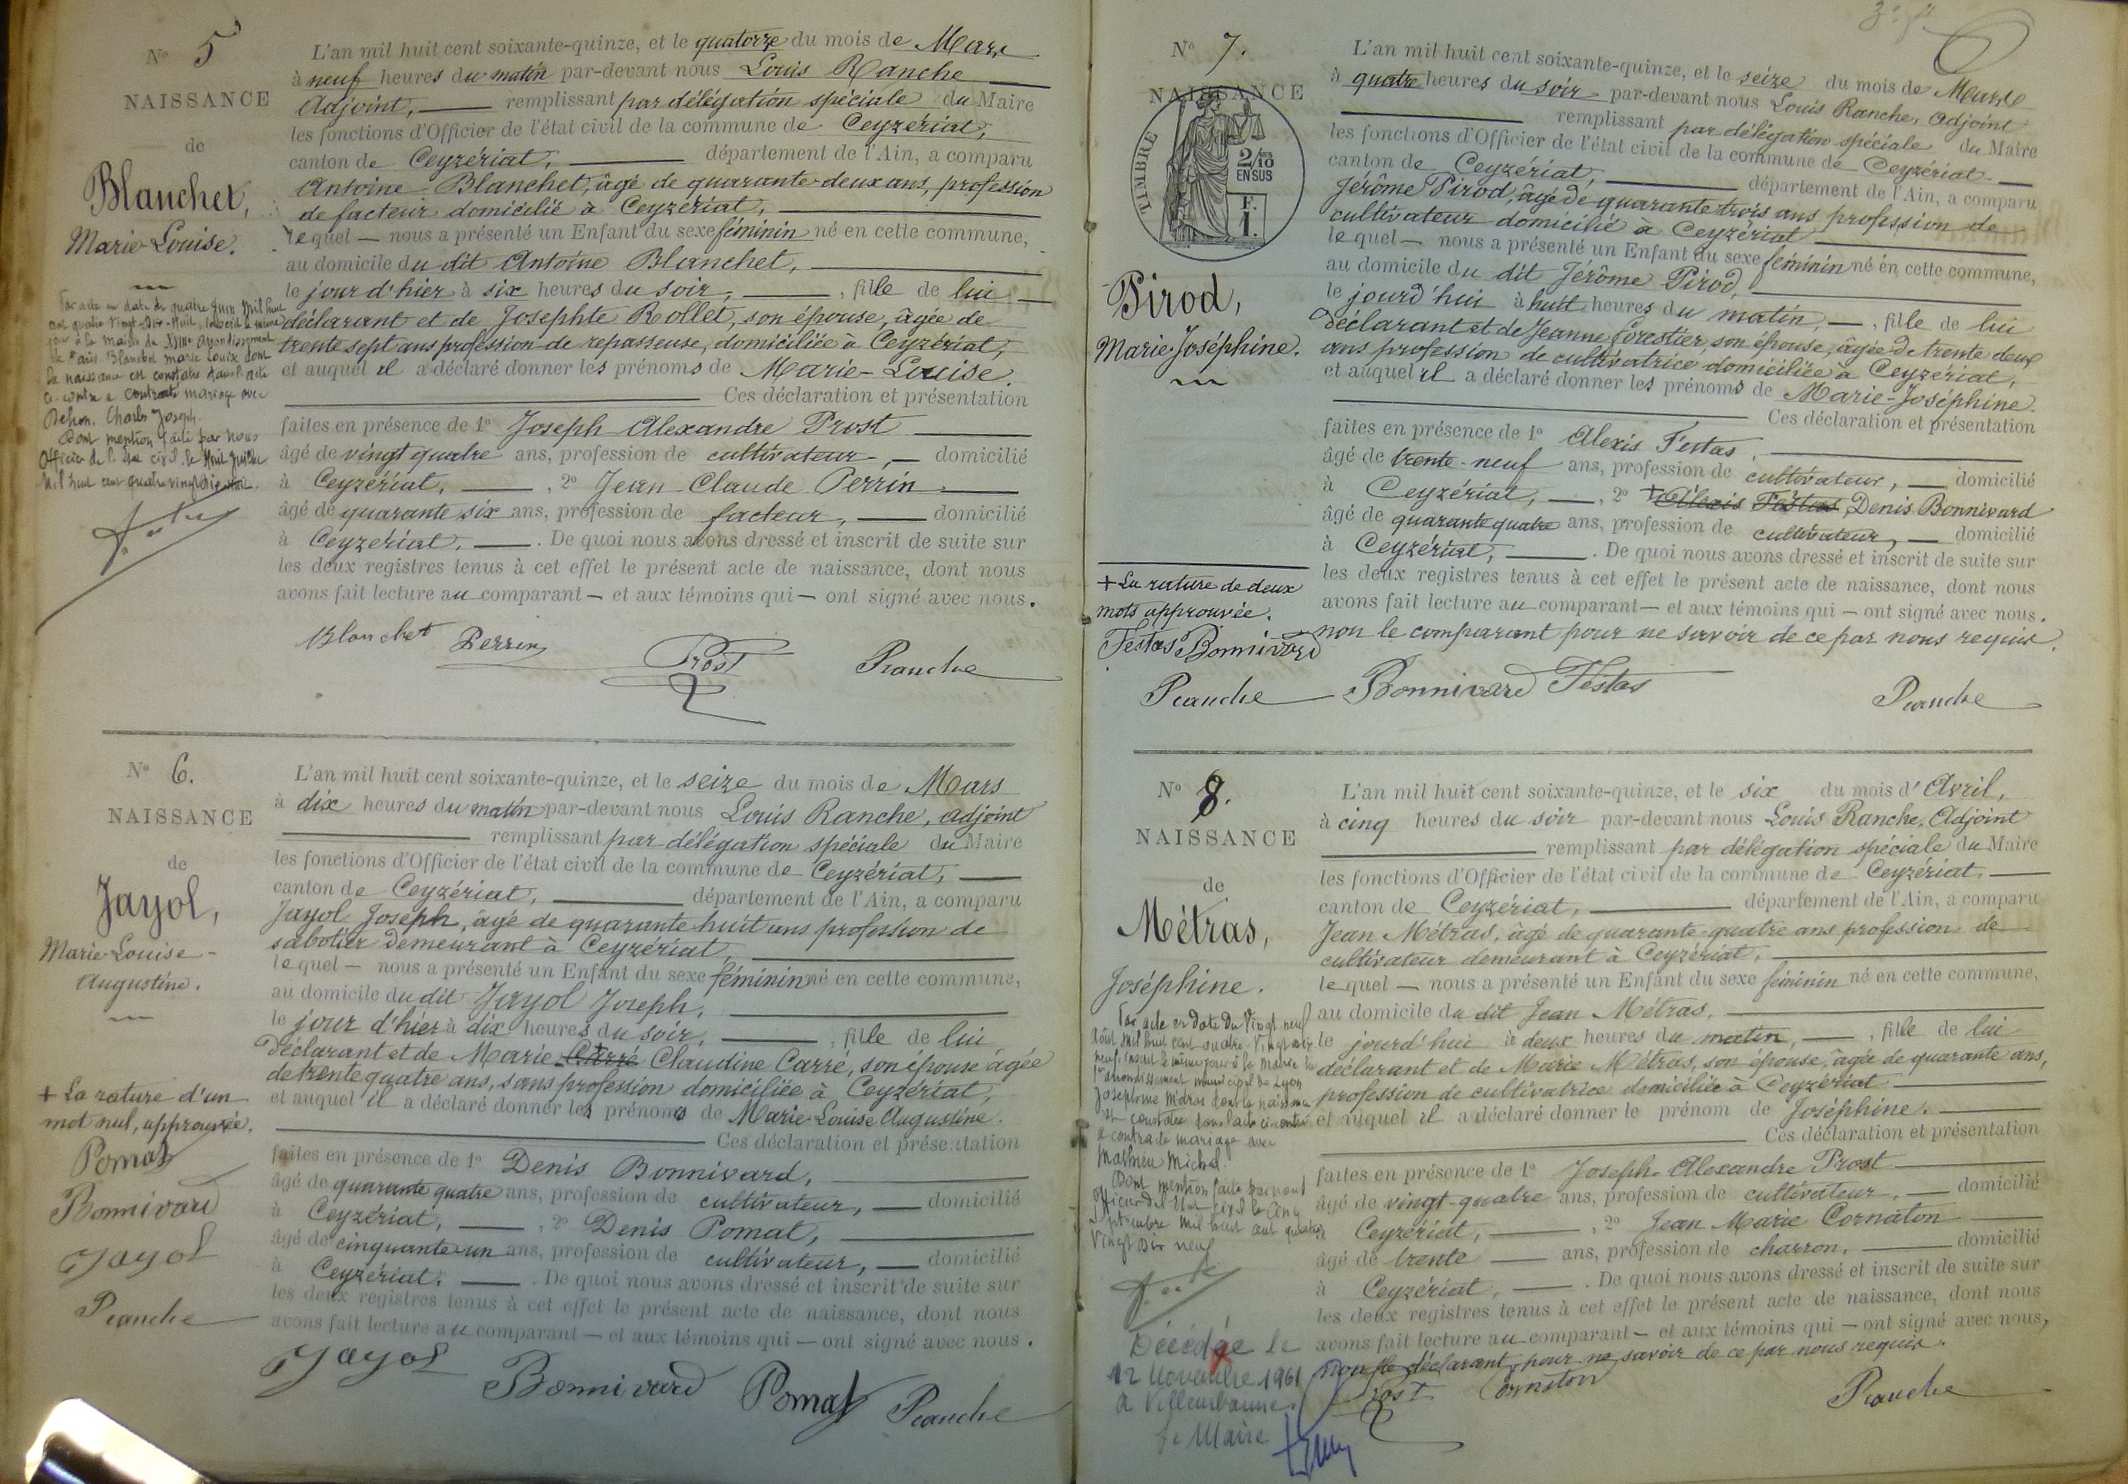 N° 5
NAISSANCE
de
Blanchet,
Marie-Louise.
Par acte en date du quatre Juin Mil huit
cent quatre vingt-Dix-Huit, inscrit le même
jour à la mairie du XVIIIe arrondissement
de Paris, Blanchet Marie Louise dont
la naissance est constatée dans l'acte
ci-contre a contracté mariage avec
Charles Joseph.
Dont mention faite par nous
Officier de l'état civil le huit Juillet
Mil huit cent quatre vingt dix huit.
L'an mil huit cent soixante-quinze, et le quatorze du mois de Mars
à neuf heures du matin par-devant nous Louis Ranche
Adjoint, remplissant par délégation spéciale du Maire
les fonctions d'Officier de l'état civil de la commune de Ceyzériat,
canton de Ceyzériat, département de l'Ain, a comparu
Antoine Blanchet, âgé de quarante-deux ans, profession
de facteur domicilié à Ceyzériat,
lequel — nous a présenté un Enfant du sexe féminin né en cette commune,
au domicile du dit Antoine Blanchet,
le jour d'hier à six heures du soir, , fille de lui
déclarant et de Josephte Rollet, son épouse, âgée de
trente sept ans profession de repasseuse, domiciliée à Ceyzériat,
et auquel il a déclaré donner les prénoms de Marie-Louise.
Ces déclaration et présentation
faites en présence de 1° Joseph Alexandre Prost
âgé de vingt quatre ans, profession de cultivateur, — domicilié
à Ceyzériat, , 2° Jean Claude Perrin
âgé de quarante six ans, profession de facteur, domicilié
à Ceyzériat. . De quoi nous avons dressé et inscrit de suite sur
les deux registres tenus à cet effet le présent acte de naissance, dont nous
avons fait lecture au comparant — et aux témoins qui — ont signé avec nous.
Blanchet Perrin Prost Ranche
N° 6.
NAISSANCE
de
Jayol,
Marie-Louise-
Augustine.
+ La rature d'un
mot nul, approuvée.
Pomat
Bonnivard
Jayol
Ranche
L'an mil huit cent soixante-quinze, et le seize du mois de Mars
à dix heures du matin par-devant nous Louis Ranche, adjoint
remplissant par délégation spéciale du Maire
les fonctions d'Officier de l'état civil de la commune de Ceyzériat,
canton de Ceyzériat, département de l'Ain, a comparu
Jayol Joseph, âgé de quarante huit ans profession de
sabotier demeurant à Ceyzériat,
lequel — nous a présenté un Enfant du sexe féminin né en cette commune,
au domicile du dit Jayol Joseph,
le jour d'hier à dix heures du soir, , fille de lui
déclarant et de Marie Carré Claudine Carré, son épouse âgée
de trente quatre ans, sans profession domiciliée à Ceyzériat,
et auquel il a déclaré donner les prénoms de Marie Louise Augustine.
Ces déclaration et présentation
faites en présence de 1° Denis Bonnivard,
âgé de quarante quatre ans, profession de cultivateur, — domicilié
à Ceyzériat, , 2° Denis Pomat,
âgé de cinquante-un ans, profession de cultivateur, — domicilié
à Ceyzériat. . De quoi nous avons dressé et inscrit de suite sur
les deux registres tenus à cet effet le présent acte de naissance, dont nous
avons fait lecture au comparant — et aux témoins qui — ont signé avec nous.
Jayol Bonnivard Pomat Ranche
N° 7.
NAISSANCE
TIMBRE
2/10
EN SUS
F.
1.
Pirod,
Marie-Joséphine.
+ La rature de deux
mots approuvée.
Festas Bonnivard
Ranche
L'an mil huit cent soixante-quinze, et le seize du mois de Mars
à quatre heures du soir par-devant nous Louis Ranche, Adjoint
remplissant par délégation spéciale du Maire
les fonctions d'Officier de l'état civil de la commune de Ceyzériat
canton de Ceyzériat, département de l'Ain, a comparu
Jérôme Pirod, âgé de quarante trois ans profession de
cultivateur domicilié à Ceyzériat
lequel — nous a présenté un Enfant du sexe féminin né en cette commune,
au domicile du dit Jérôme Pirod,
le jourd'hui à huit heures du matin, — , fille de lui
déclarant et de Jeanne Forestier, son épouse, âgée de trente deux
ans profession de cultivatrice domiciliée à Ceyzériat,
et auquel il a déclaré donner les prénoms de Marie-Joséphine.
Ces déclaration et présentation
faites en présence de 1° Alexis Festas,
âgé de trente-neuf ans, profession de cultivateur, — domicilié
à Ceyzériat, — , 2° + Alexis Festas Denis Bonnivard
âgé de quarante quatre ans, profession de cultivateur, — domicilié
à Ceyzériat, . De quoi nous avons dressé et inscrit de suite sur
les deux registres tenus à cet effet le présent acte de naissance, dont nous
avons fait lecture au comparant — et aux témoins qui — ont signé avec nous.
non le comparant pour ne savoir de ce par nous requis.
Bonnivard Festas Ranche
N° 8.
NAISSANCE
de
Métras,
Joséphine.
Par acte en date du vingt neuf
Août mil huit cent quatre-vingt dix
neuf, inscrit le même jour à la Mairie du
1er arrondissement municipal de Lyon
Joséphine Métras dont la naissance
est constatée dans l'acte ci-contre
a contracté mariage avec
Mathieu Michel.
Dont mention faite par nous
officier de l'état civil le cinq
septembre mil huit cent quatre
vingt dix neuf
Décédée le
12 Novembre 1961
à Villeurbanne.
Le Maire
L'an mil huit cent soixante-quinze, et le six du mois d'Avril,
à cinq heures du soir par-devant nous Louis Ranche, Adjoint
remplissant par délégation spéciale du Maire
les fonctions d'Officier de l'état civil de la commune de Ceyzériat,
canton de Ceyzériat, département de l'Ain, a comparu
Jean Métras, âgé de quarante-quatre ans profession de
cultivateur demeurant à Ceyzériat,
lequel — nous a présenté un Enfant du sexe féminin né en cette commune,
au domicile du dit Jean Métras,
le jourd'hui à deux heures du matin, , fille de lui
déclarant et de Marie Métras, son épouse, âgée de quarante ans,
profession de cultivatrice domiciliée à Ceyzériat
et auquel il a déclaré donner le prénom de Joséphine.
Ces déclaration et présentation
faites en présence de 1° Joseph-Alexandre Prost
âgé de vingt-quatre ans, profession de cultivateur, — domicilié
à Ceyzériat, , 2° Jean Marie Cornaton
âgé de trente ans, profession de charron, domicilié
à Ceyzériat, . De quoi nous avons dressé et inscrit de suite sur
les deux registres tenus à cet effet le présent acte de naissance, dont nous
avons fait lecture au comparant — et aux témoins qui — ont signé avec nous,
non le déclarant, pour ne savoir de ce par nous requis.
Prost Cornaton Ranche